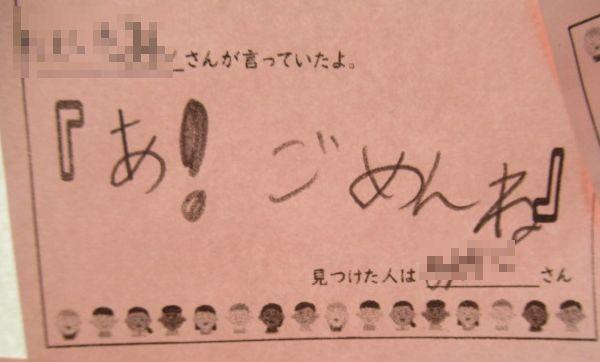 さんが言っていたよ。
『あ!ごめんね』
見つけた人は さん